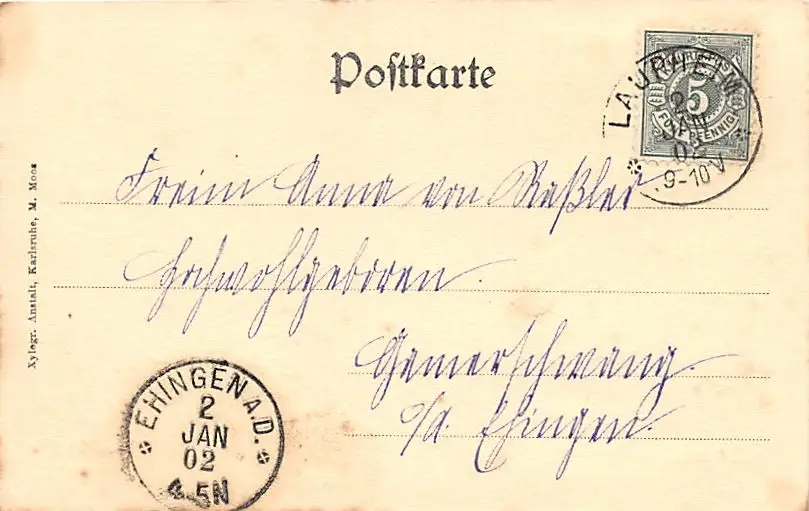 Postkarte
LAUPHEIM
2
JAN
02
9-10V
5
FÜNF PFENNIG
Freiin Anna von Raßler
Hochwohlgeboren.
Gamerschwang.
b/a. Ehingen.
EHINGEN A.D.
2
JAN
02
4-5N
Xylogr. Anstalt, Karlsruhe, M. Moos